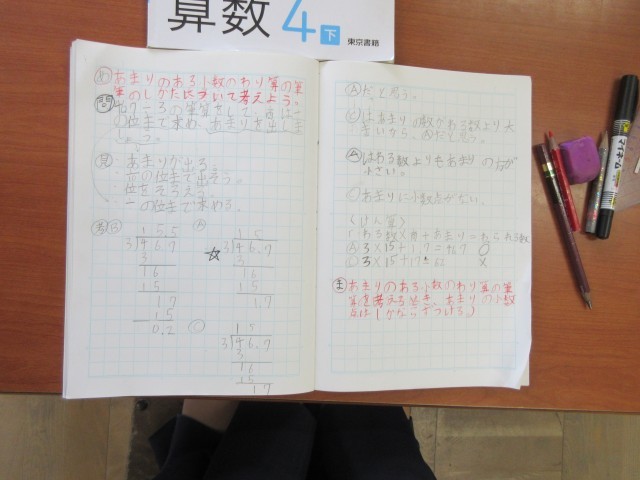 算数 4 下 東京書籍
め あまりのある小数のわり算の筆
算のしかたについて考えよう。
問 46.7÷3の筆算をして、商は一
の位まで求め、あまりを出しま
しょう。
見 ・あまりが出る。
・一の位まで出そう。
・位をそろえる。
・一の位まで求める。
考 B
15.5
3)46.7
3
16
15
17
15
0.2
A
15
☆ 3)46.7
3
16
15
1.7
C
15
3)46.7
3
16
15
17
Aだと思う。
Cはあまりの数がわる数より大
きいから、Aだと思う。
Aはわる数よりもあまりの方が
小さい。
Cあまりに小数点がない。
くけん算〉
(わる数×商+あまり=わられる数)
A 3×15+1.7=46.7 ○
C 3×15+17=62 ×
ま あまりのある小数のわり算の筆
算を考えるとき、あまりの小数
点は